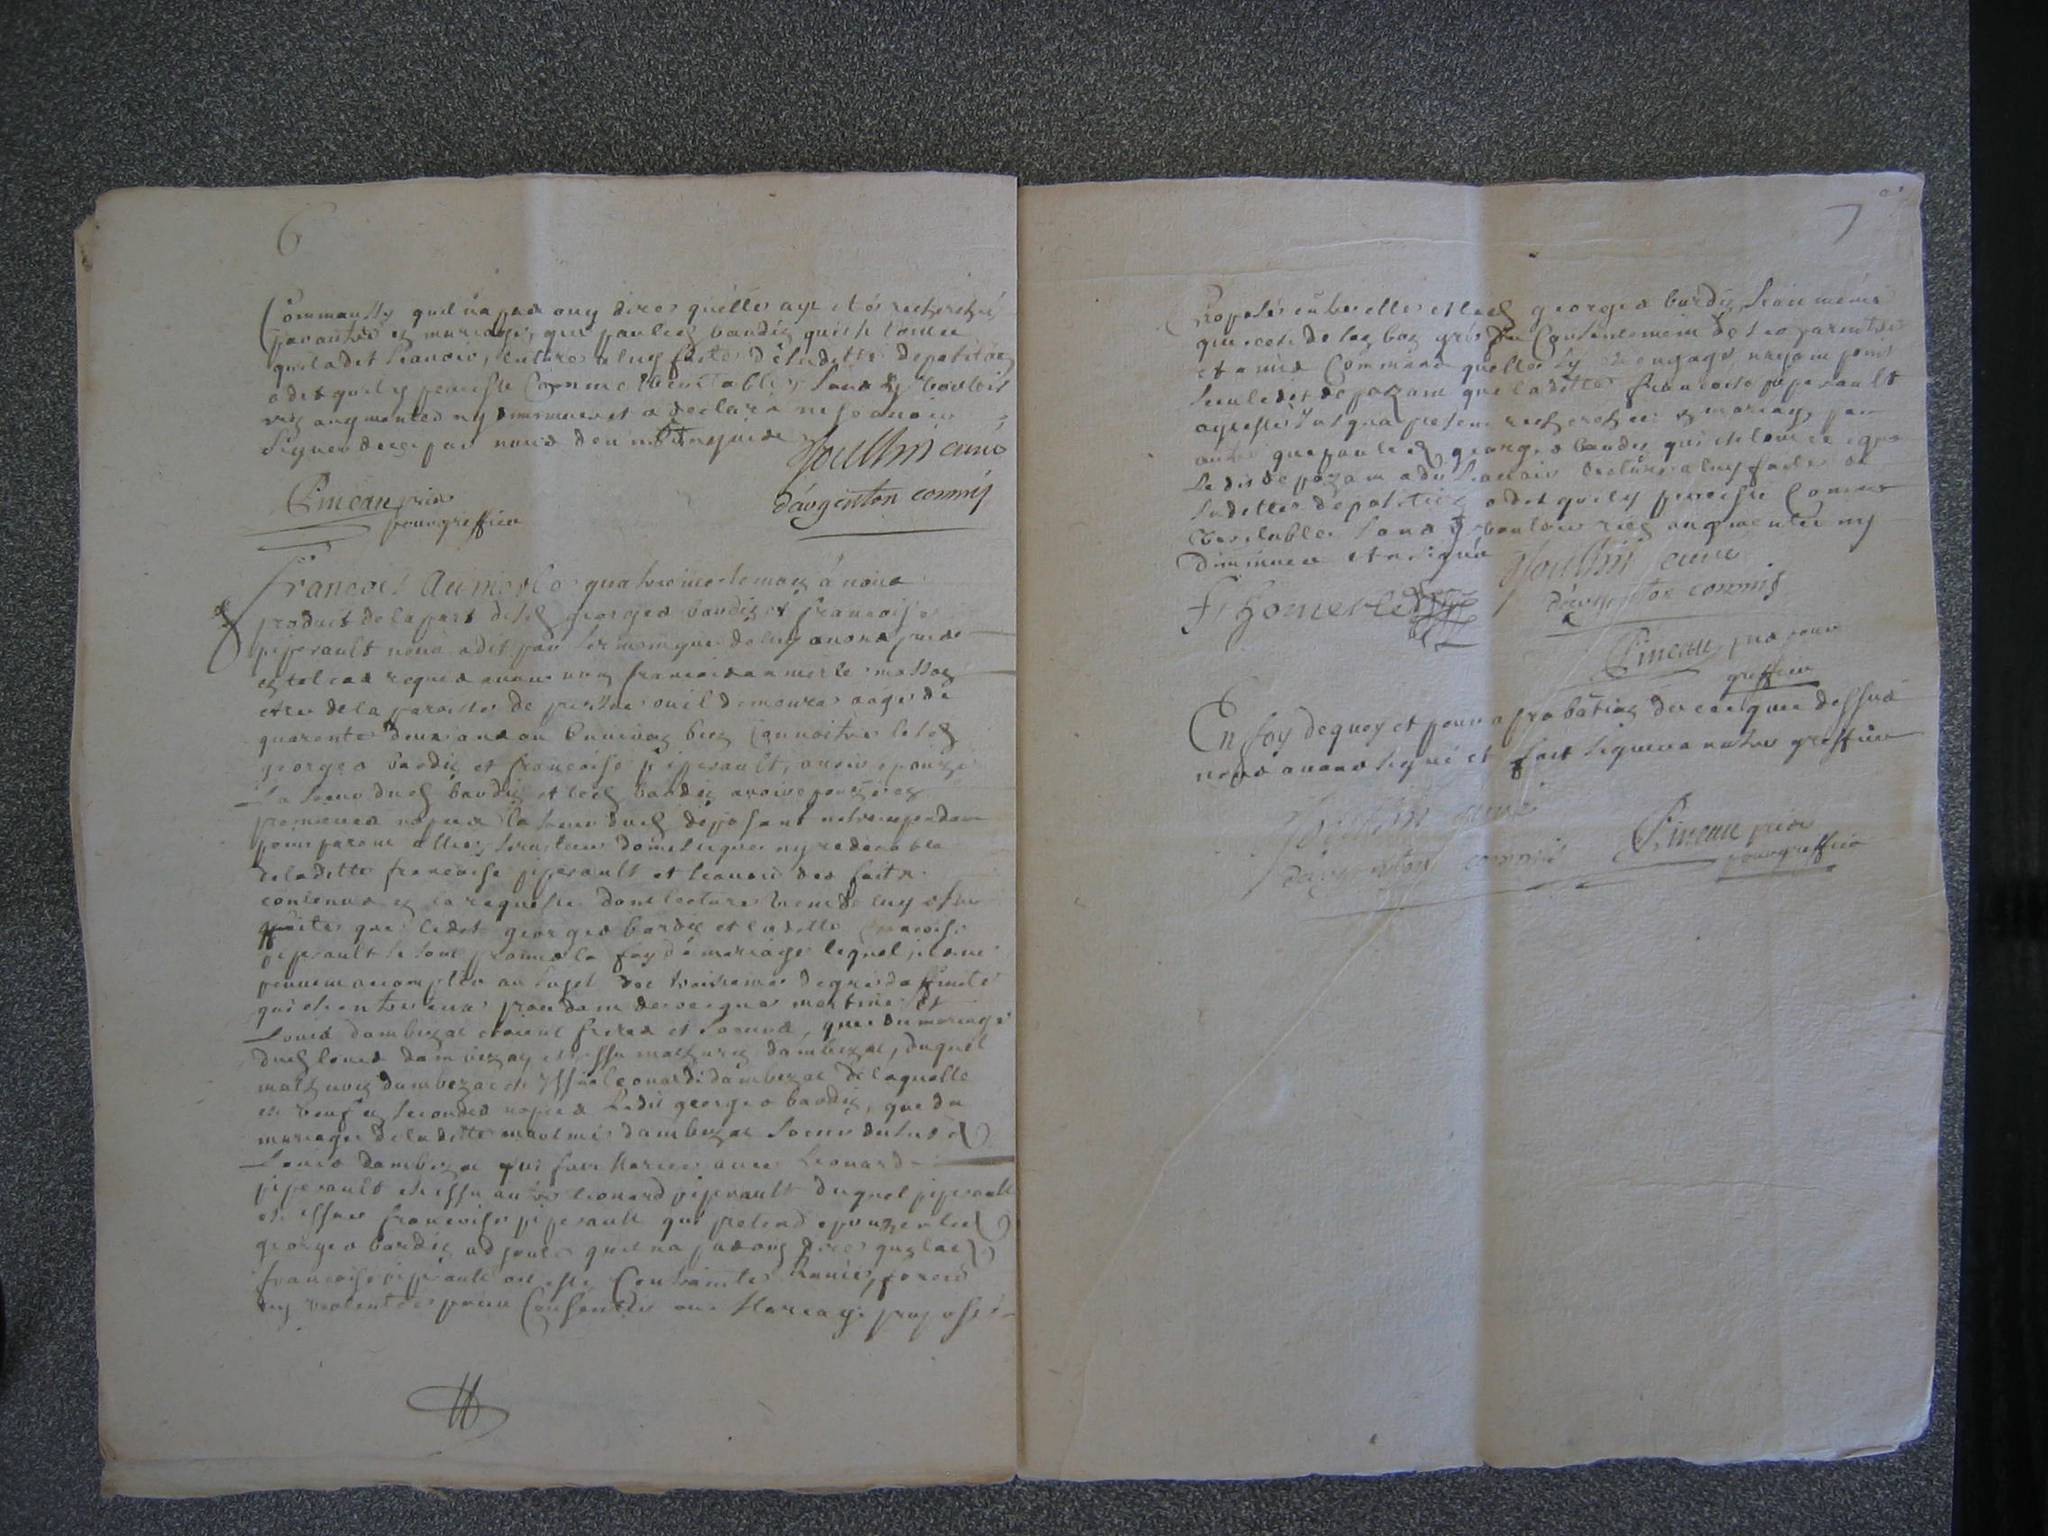 6
Command quil na pas ouy dire quelle aye etée recherchée
par autre en mariage, que par led bardin, qui est tout ce
quil a dit scavoir, lecture a luy faite de sa ditte deposition
a dit quil y persiste Comme veritable, sans y vouloir
rien augmenter ny diminuer et a declaré ne scavoir
signer de ce par nous deument enquis
cure
Pineau pris
pour greffier
d'argenton commis
François aumerle quatrieme temoin a nous
produit de la part desd georges bardin et francoise
piperault nous a dit par serment que de luy avons pris
et tel cas requis avoir nom francois aumerle masson
et de la paroisse de ou il demeure aagé de
quarente deux ans ou Environ bien Connoitre lesd
georges bardin et francoise piperault, avoir epouzé
la soeur dud bardin et led bardin avoir epouzé en
premieres nopces la soeur dud déposant n'etre cependant
pour parent allié, serviteur domestique ny redevable
de laditte francoise piperault et scavoir des faits
contenus en la requeste dont lecture vient de luy estre
faitte que ledit georges bardin et laditte francoise
piperault se sont promis la foy de mariage lequel ils ne
peuvent accomplir au sujet du troisieme degré daffinité
qui est entre eux provenant de ce que martine et
Louis dambezac etoient freres et soeurs, que du mariage
dud louis dambezac est issu mathurin dambezac, duquel
mathurin dambezac est yssue leonarde dambezac de laquelle
est veuf en secondes nopces Ledit georges bardin, que du
mariage de laditte martine dambezac soeur du susd
Louis dambezac qui fut Mariée avec Leonard
piperault est issu autre leonard piperault duquel piperault
est issue francoise piperault qui pretend epouzer led
georges bardin adjoute quil na pas ouy dire que lad
francoise piperault ait esté Contrainte Ravie, forcée
ny violentée pour Consentir au Mariage proposé
7
Proposé entre elle et led georges bardin, scait même
que cest de son bon gré du Consentement de ses parents
et amis Commune quelle sy est engagé, nayant point
led deposant que laditte francoise piperault
aye esté jusqua present recherchée en mariage par
autre que par led georges bardin qui est tout ce que
Le dit depozant a dit scavoir lecture a luy faite de
sa ditte deposition a dit quil y persiste Comme
veritable sans y vouloir rien augmenter ny
diminuer et a signé
cure
d'argenton commis
Pineau pris pour
greffier
En foy de quoy et pour aprobation de ce que dessus
nous avons signé et fait signer a notre greffier
curé
d'argenton commis
Pineau pris
pour greffier